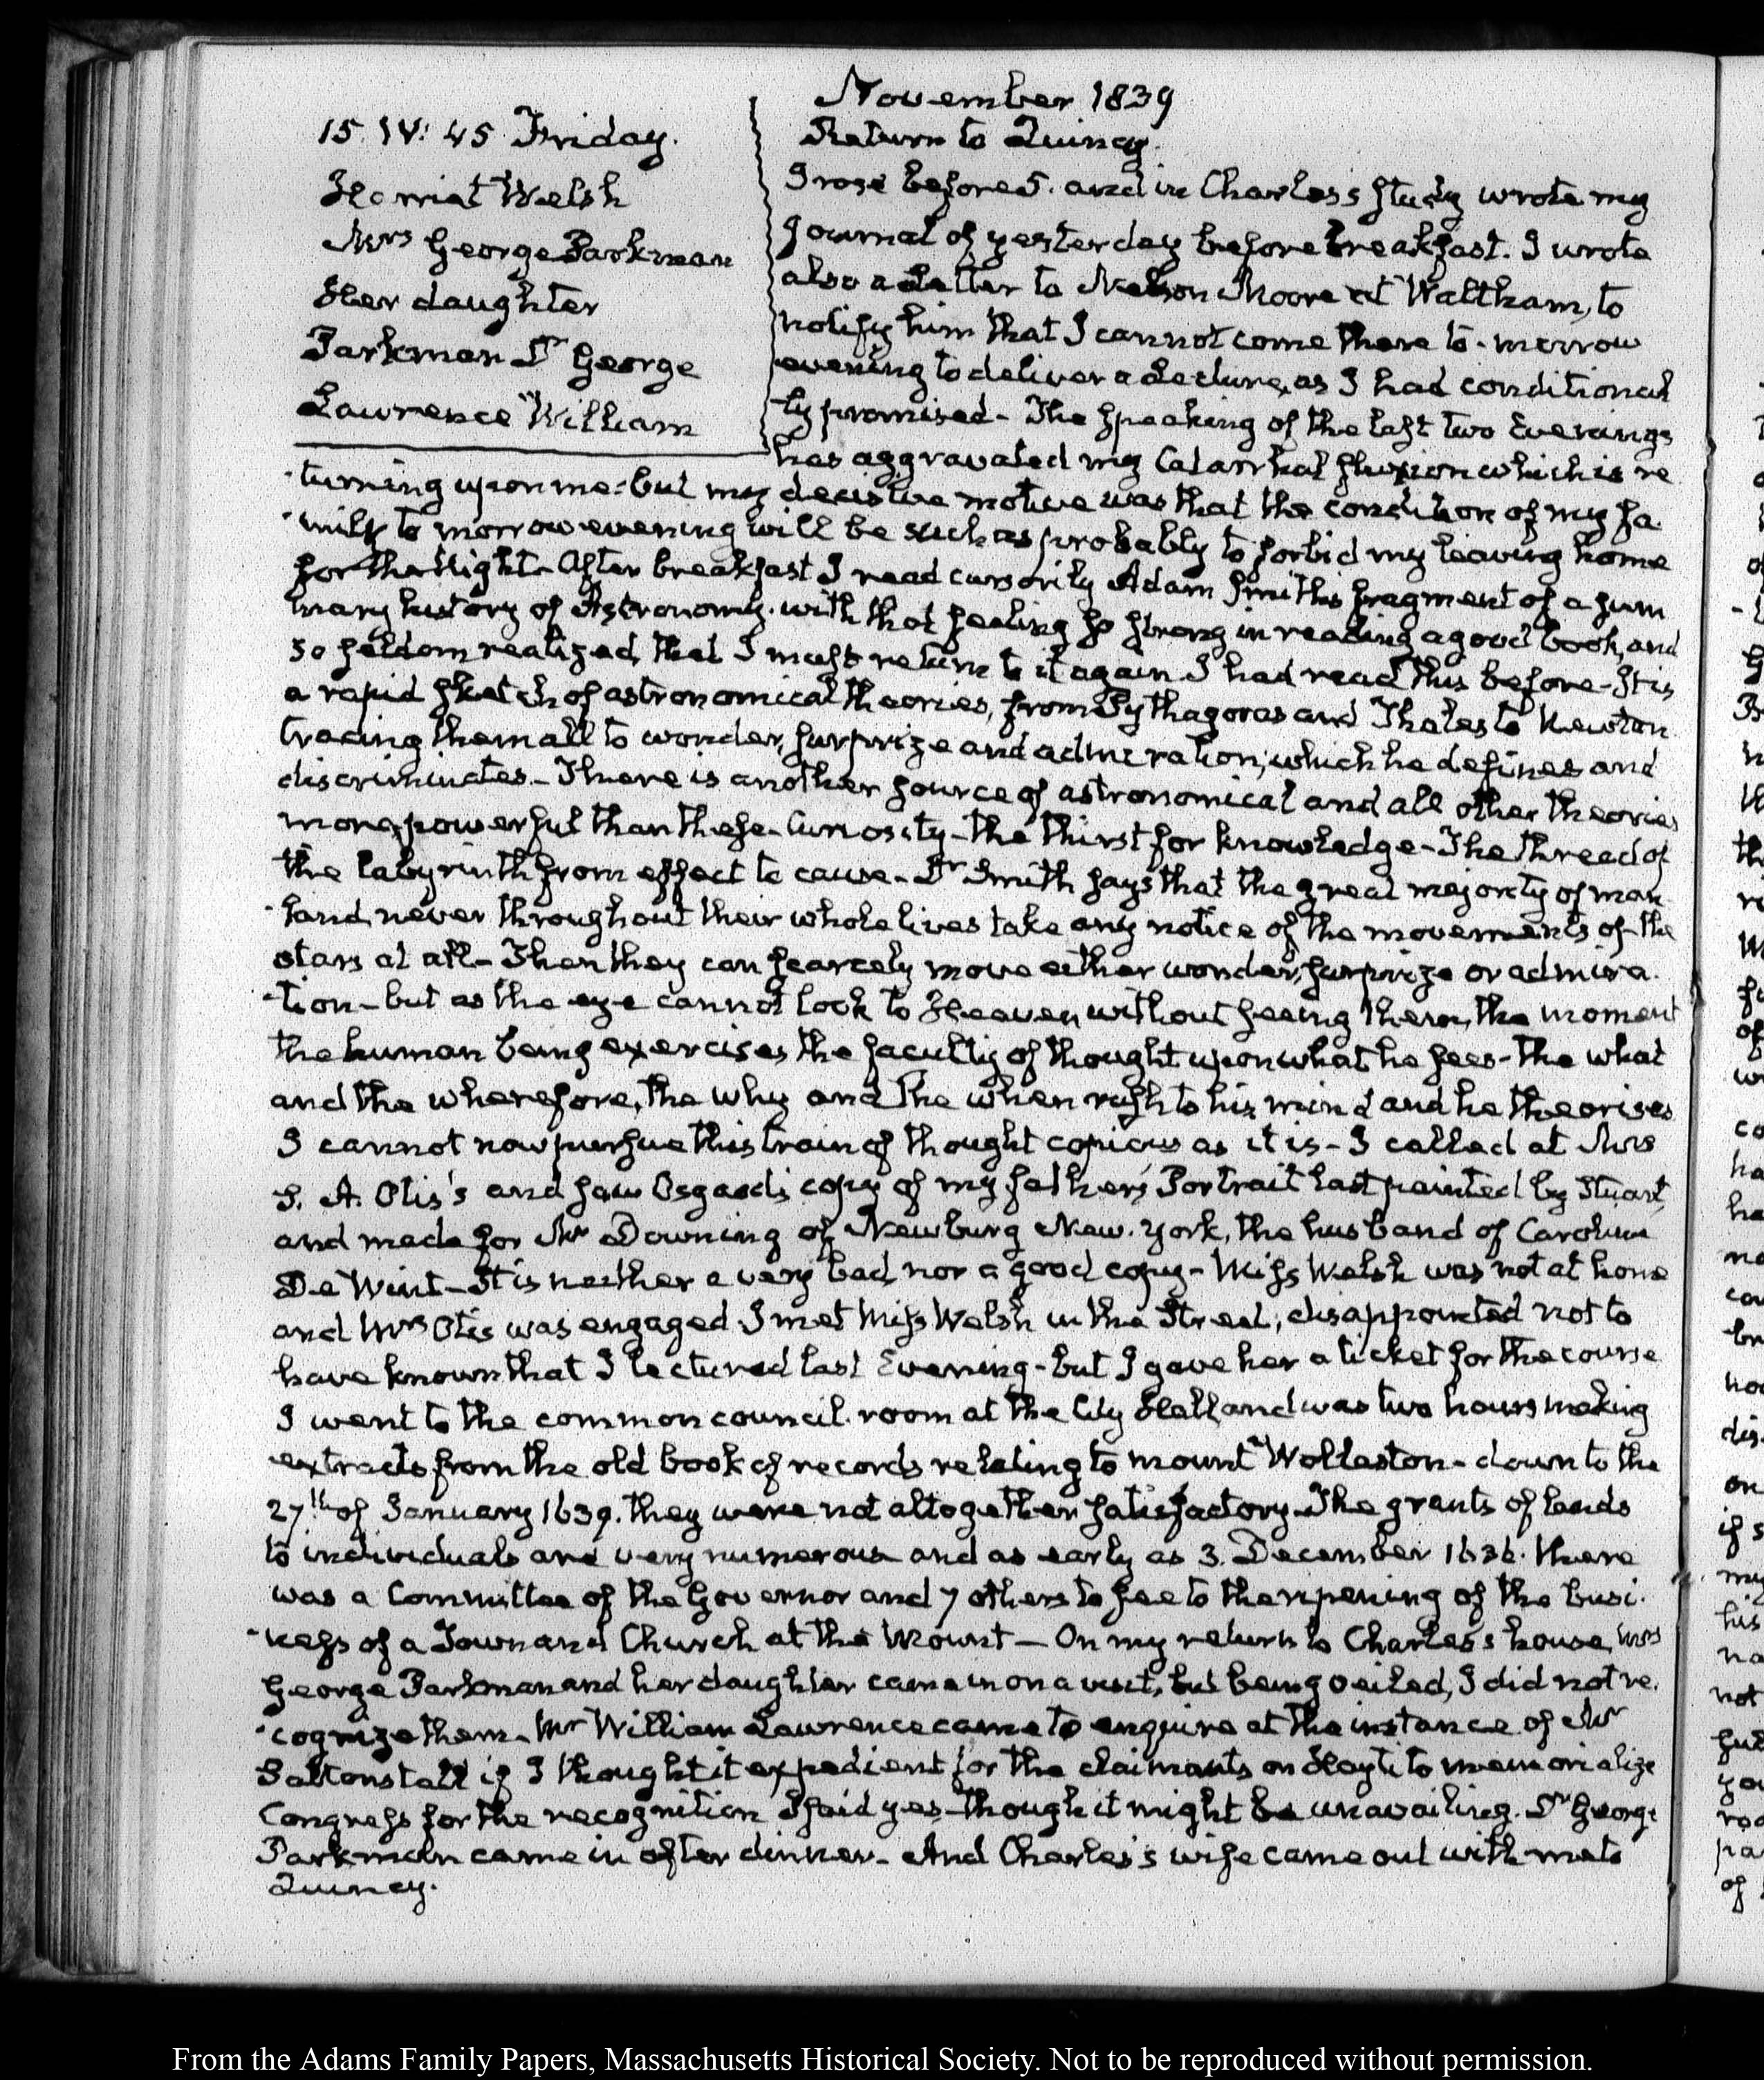 November 1839
15. IV: 45 Friday.
Harriet Welsh
Mrs George Parkman
Her daughter
Parkman Dr George
Lawrence William
Return to Quincy.
I rose before 5. and in Charles's study wrote my
journal of yesterday before breakfast. I wrote
also a Letter to Nelson Moore at Waltham, to
notify him that I cannot come there to-morrow
evening to deliver a Lecture, as I had conditional
ly promised- The speaking of the last two Evenings
has aggravated my Catarrhal fluxion which is re
turning upon me- but my decisive motive was that the condition of my fa
mily to morrow evening will be such as probably to forbid my leaving home
for the Night- After breakfast I read cursorily Adam Smith's fragment of a sum
mary history of Astronomy. with that feeling so strong in reading a good book, and
so seldom realized, that I must return to it again. I had read this before- It is
a rapid sketch of astronomical theories, from Pythagoras and Thales to Newton
tracing them all to wonder, surprize and admiration, which he defines and
discriminates- There is another source of astronomical and all other theories
more powerful than these- Curiosity- the thirst for knowledge- The thread of
the labyrinth from effect to cause- Dr Smith says that the great majority of man
kind never throughout their whole lives take any notice of the movements of the
stars at all- Then they can scarcely move either wonder, surprize or admira-
tion- but as the eye cannot look to Heaven without seeing them, the moment
the human being exercises the faculty of thought upon what he sees- the what
and the wherefore, the why and the when rush to his mind and he theorises
I cannot now pursue this train of thought copious as it is- I called at Mrs
S. A. Otis's and saw Osgood's copy of my father's Portrait last painted by Stuart,
and made for Mr Downing of Newburg New-York, the husband of Caroline
De Wint- It is neither a very bad nor a good copy- Miss Welsh was not at home
and Mrs Otis was engaged I met Miss Welsh in the Street, disappointed not to
have known that I lectured last Evening- but I gave her a ticket for the course
I went to the common council-room at the City Hall, and was two hours making
extracts from the old book of records relating to mount Wollaston- down to the
27th of January 1639. they were not altogether satisfactory- The grants of lands
to individuals are very numerous and as early as 3. December 1636. there
was a Committee of the Governor and 7 others to see to the ripening of the busi-
ness of a Town and Church at the Mount- On my return to Charles's house, Mrs
George Parkman and her daughter came in on a visit, but being veiled, I did not re-
cognize them- Mr William Lawrence came to enquire at the instance of Mr
Saltonstall if I thought it expedient for the claimants on Hayti to memorialize
Congress for the recognition I said yes- though it might be unavailing. Dr George
Parkman came in after dinner- And Charles's wife came out with me to
Quincy.
From the Adams Family Papers, Massachusetts Historical Society. Not to be reproduced without permission.